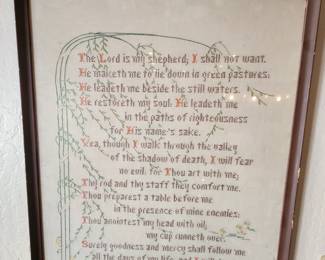 The Lord is my shepherd; I shall not want.
He maketh me to lie down in green pastures:
He leadeth me beside the still waters.
He restoreth my soul: He leadeth me
in the paths of righteousness
for His name's sake.
Yea, though I walk through the valley
of the shadow of death, I will fear
no evil: for Thou art with me;
Thy rod and thy staff they comfort me.
Thou preparest a table before me
in the presence of mine enemies:
Thou anointest my head with oil;
my cup runneth over.
Surely goodness and mercy shall follow me
all the days of my life: and I will